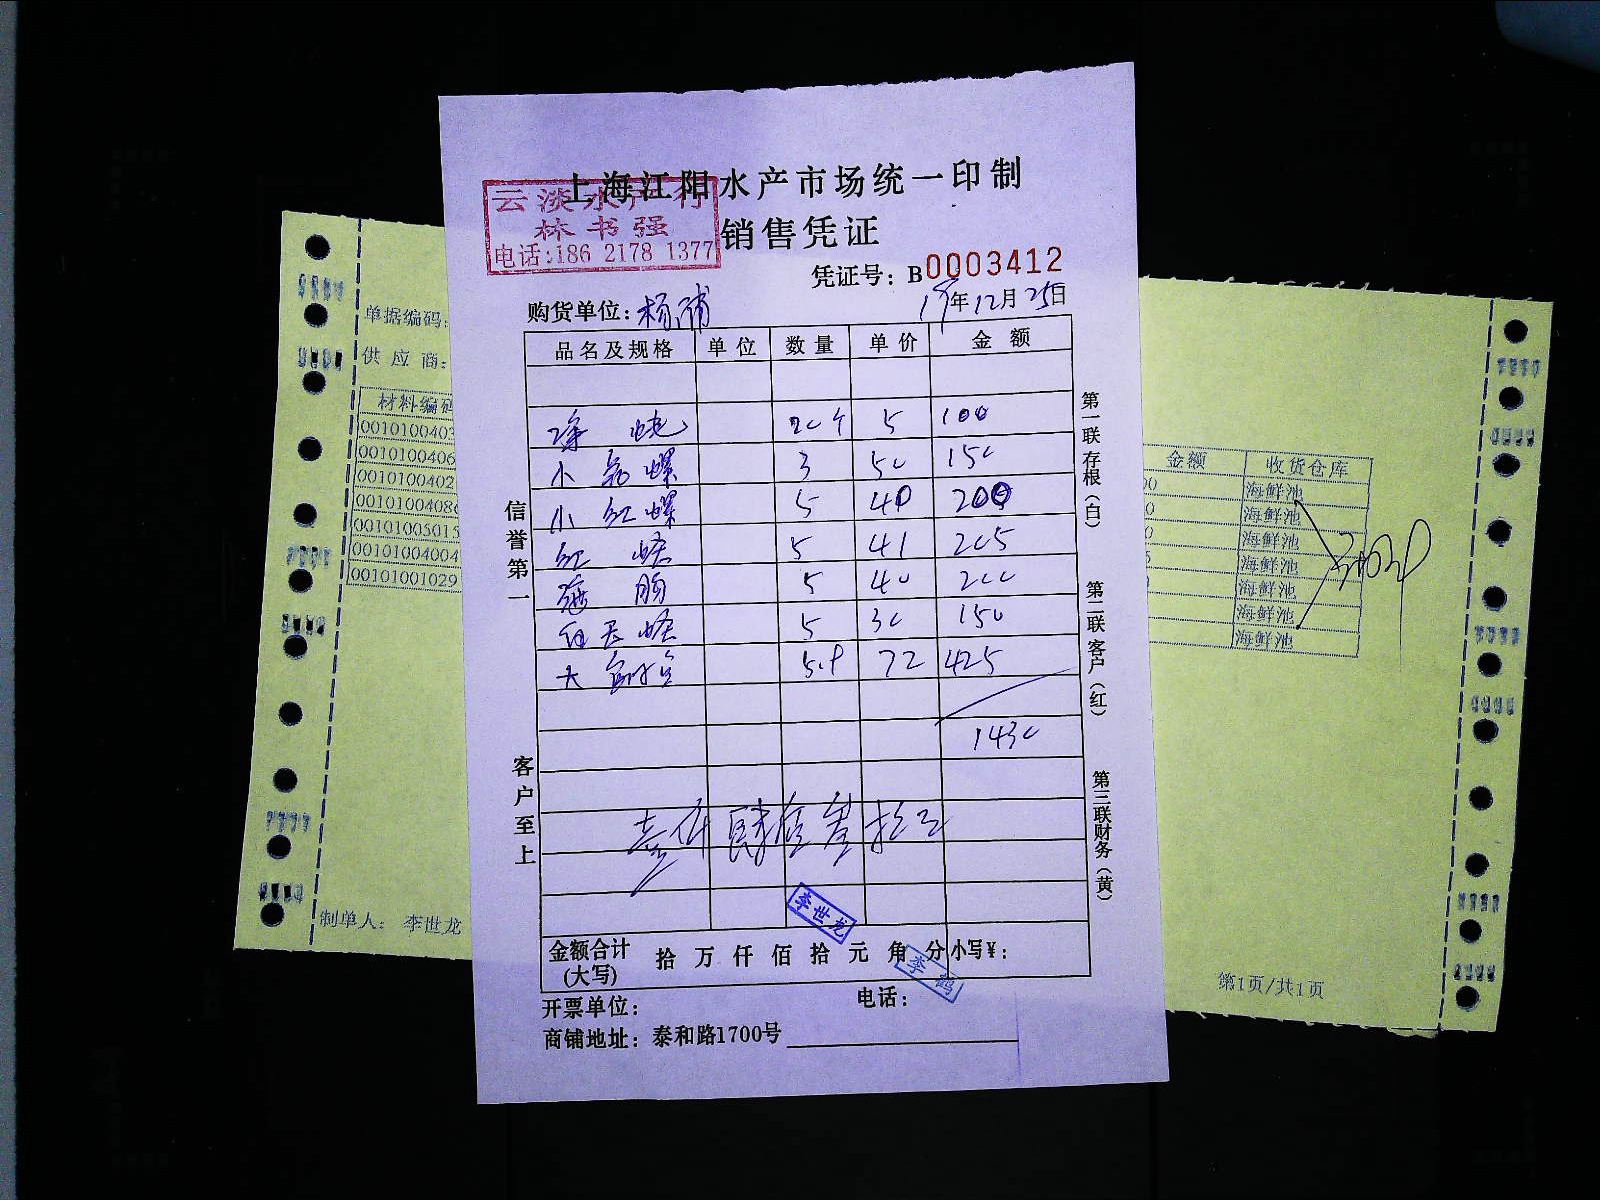 上海江阳水产市场统一印制
云淡水产行
林书强
电话:186 2178 1377
销售凭证
凭证号: B0003412
购货单位: 杨浦
19年12月25日
品名及规格 单位 数量 单价 金额
20个 5 100
小 螺 3 50 150
小红螺 5 40 200
红 5 41 205
5 40 200
5 30 150
大 5.9 72 425
1430
壹仟肆佰叁拾元
金额合计(大写) 拾 万 仟 佰 拾 元 角 分 小写¥:
李世龙
李鹤
开票单位: 电话:
商铺地址: 泰和路1700号
信誉第一
客户至上
第一联存根(白)
第二联客户(红)
第三联财务(黄)
单据编码:
供应商:
材料编码
00101004
0010100406
0010100402
0010100408
0010100501
00101004004
00101001029
制单人: 李世龙
金额 收货仓库
海鲜池
海鲜池
海鲜池
海鲜池
海鲜池
海鲜池
海鲜池
第1页/共1页